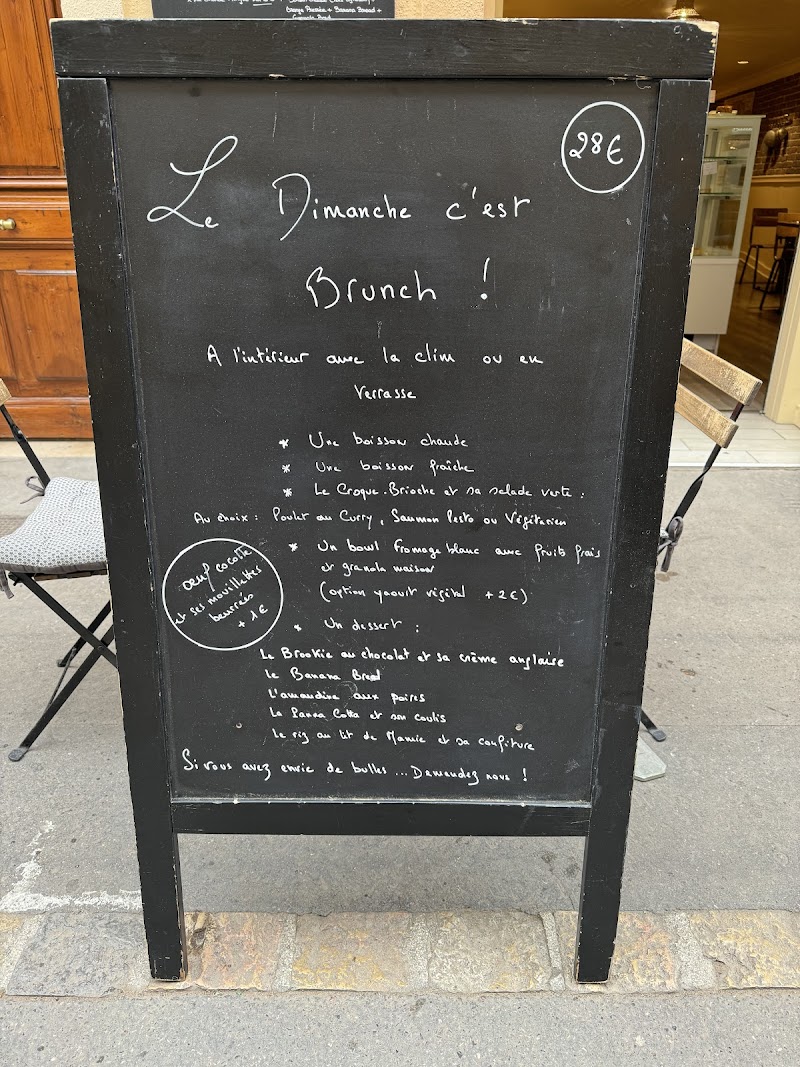 Orange Pressée + Banana Bread +
Le Dimanche c'est
28€
Brunch !
A l'intérieur avec la clim ou en
Terrasse
* Une boisson chaude
* Une boisson fraîche
* Le Croque-Brioche et sa salade verte :
Au choix : Poulet au Curry, Saumon Pesto ou Végétarien
* Un bowl fromage blanc avec fruits frais
et granola maison
(option yaourt végétal +2€)
oeuf cocotte
et ses mouillettes
beurrées
+ 1€
* Un dessert :
Le Brookie au chocolat et sa crème anglaise
Le Banana Bread
L'amandine aux poires
La Panna Cotta et son coulis
Le riz au lait de Mamie et sa confiture
Si vous avez envie de bulles ... Demandez nous !